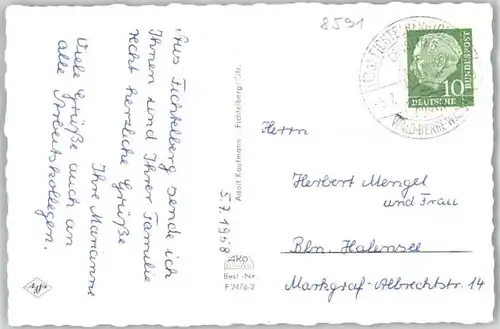 8591
Aus Fichtelberg sende ich
Ihnen und Ihrer Familie
recht herzliche Grüße
Ihre Marianne
Viele Grüße auch an
alle Arbeitskollegen.
5.7.1968
Adolf Kaufmann Fichtelberg/Ofr.
AKO
Best.-Nr.
F 2476-2
DEUTSCHE
BUNDESPOST
10
Herrn
Herbert Mengel
und Frau
Bln. Halensee
Markgraf-Albrechtstr. 14